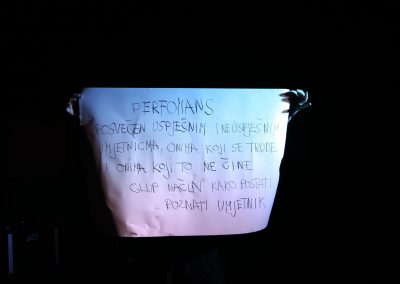 PERFOMANS
POSVEĆEN USPJEŠNIM I NEUSPJEŠNIM
UMJETNICIMA, ONIMA KOJI SE TRUDE
I ONIMA KOJI TO NE ČINE
GLUP NAČIN KAKO POSTATI
POZNATI UMJETNIK